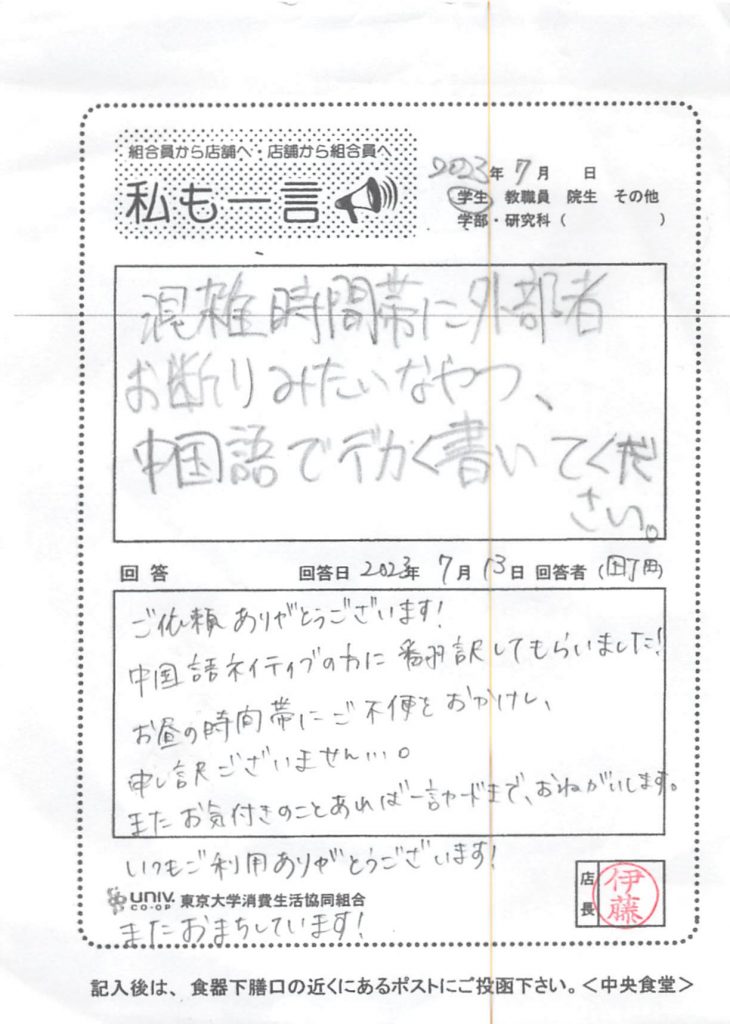 組合員から店舗へ・店舗から組合員へ
私も一言
2023年 7月 日
学生 教職員 院生 その他
学部・研究科( )
混雑時間帯に外部者
お断りみたいなやつ、
中国語でデカく書いてくだ
さい。
回答 回答日 2023年 7月 13日 回答者( )
ご依頼ありがとうございます!
中国語ネイティブの方に翻訳してもらいました!
お昼の時間帯にご不便をおかけし、
申し訳ございません…。
またお気付きのことあれば一言カードまで、おねがいします。
いつもご利用ありがとうございます!
UNIV. CO-OP 東京大学消費生活協同組合
店長 伊藤
またおまちしています!
記入後は、食器下膳口の近くにあるポストにご投函下さい。<中央食堂>